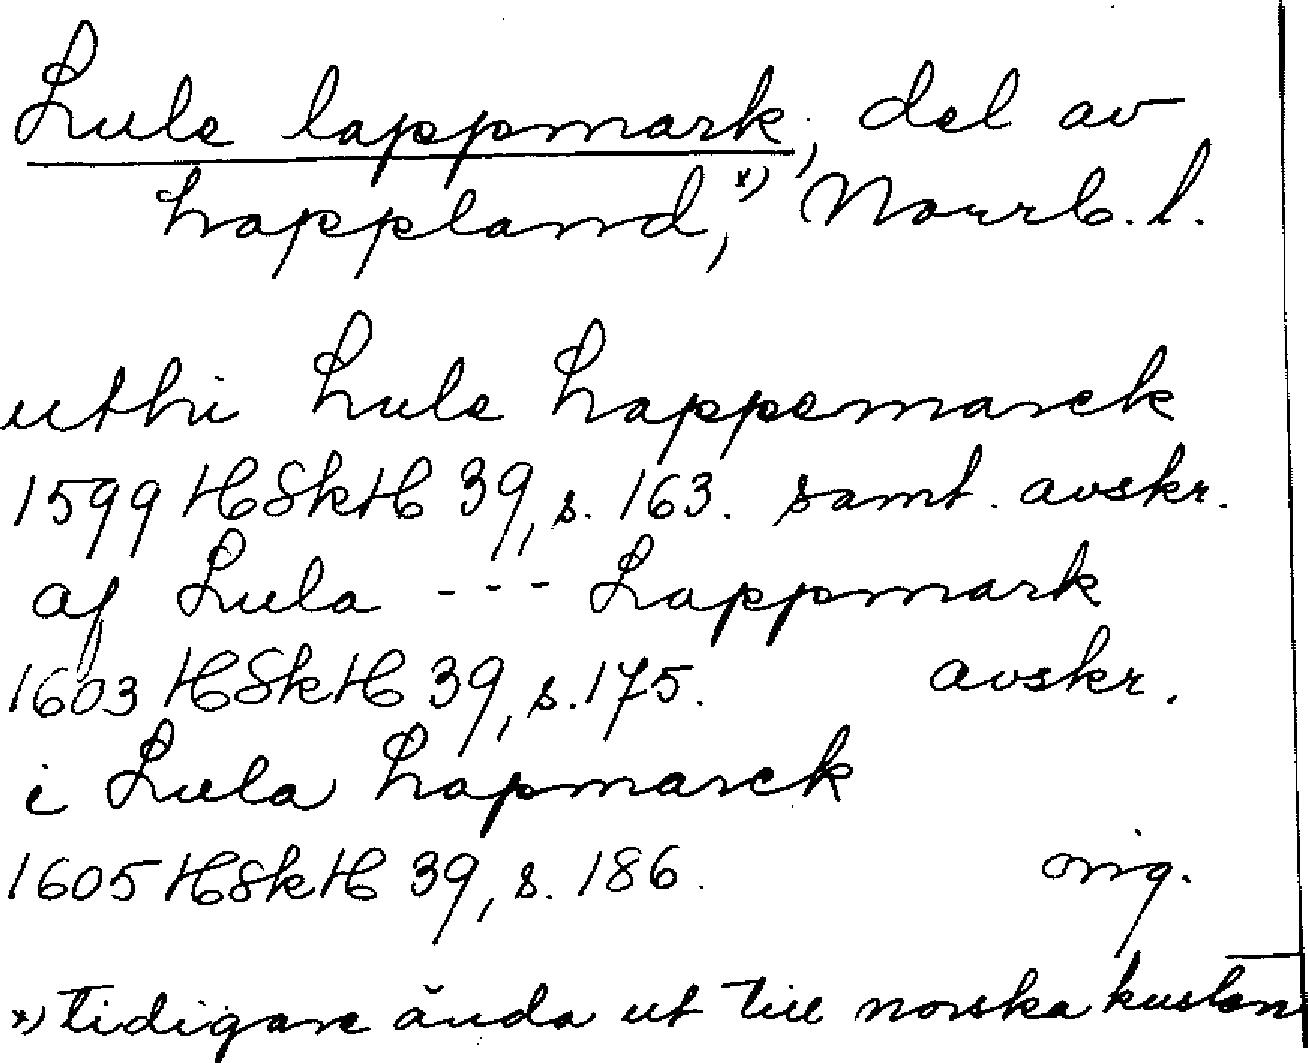 Lule lappmark, del av
Lappland,*) Norrb. l.
uthi Lule Lappemarck
1599 HSkH 39, s. 163. samt. avskr.
af Lula --- Lappmark
1603 HSkH 39, s. 175. avskr.
i Lula Lapmarck
1605 HSkH 39, s. 186. orig.
*) tidigare ända ut till norska kusten